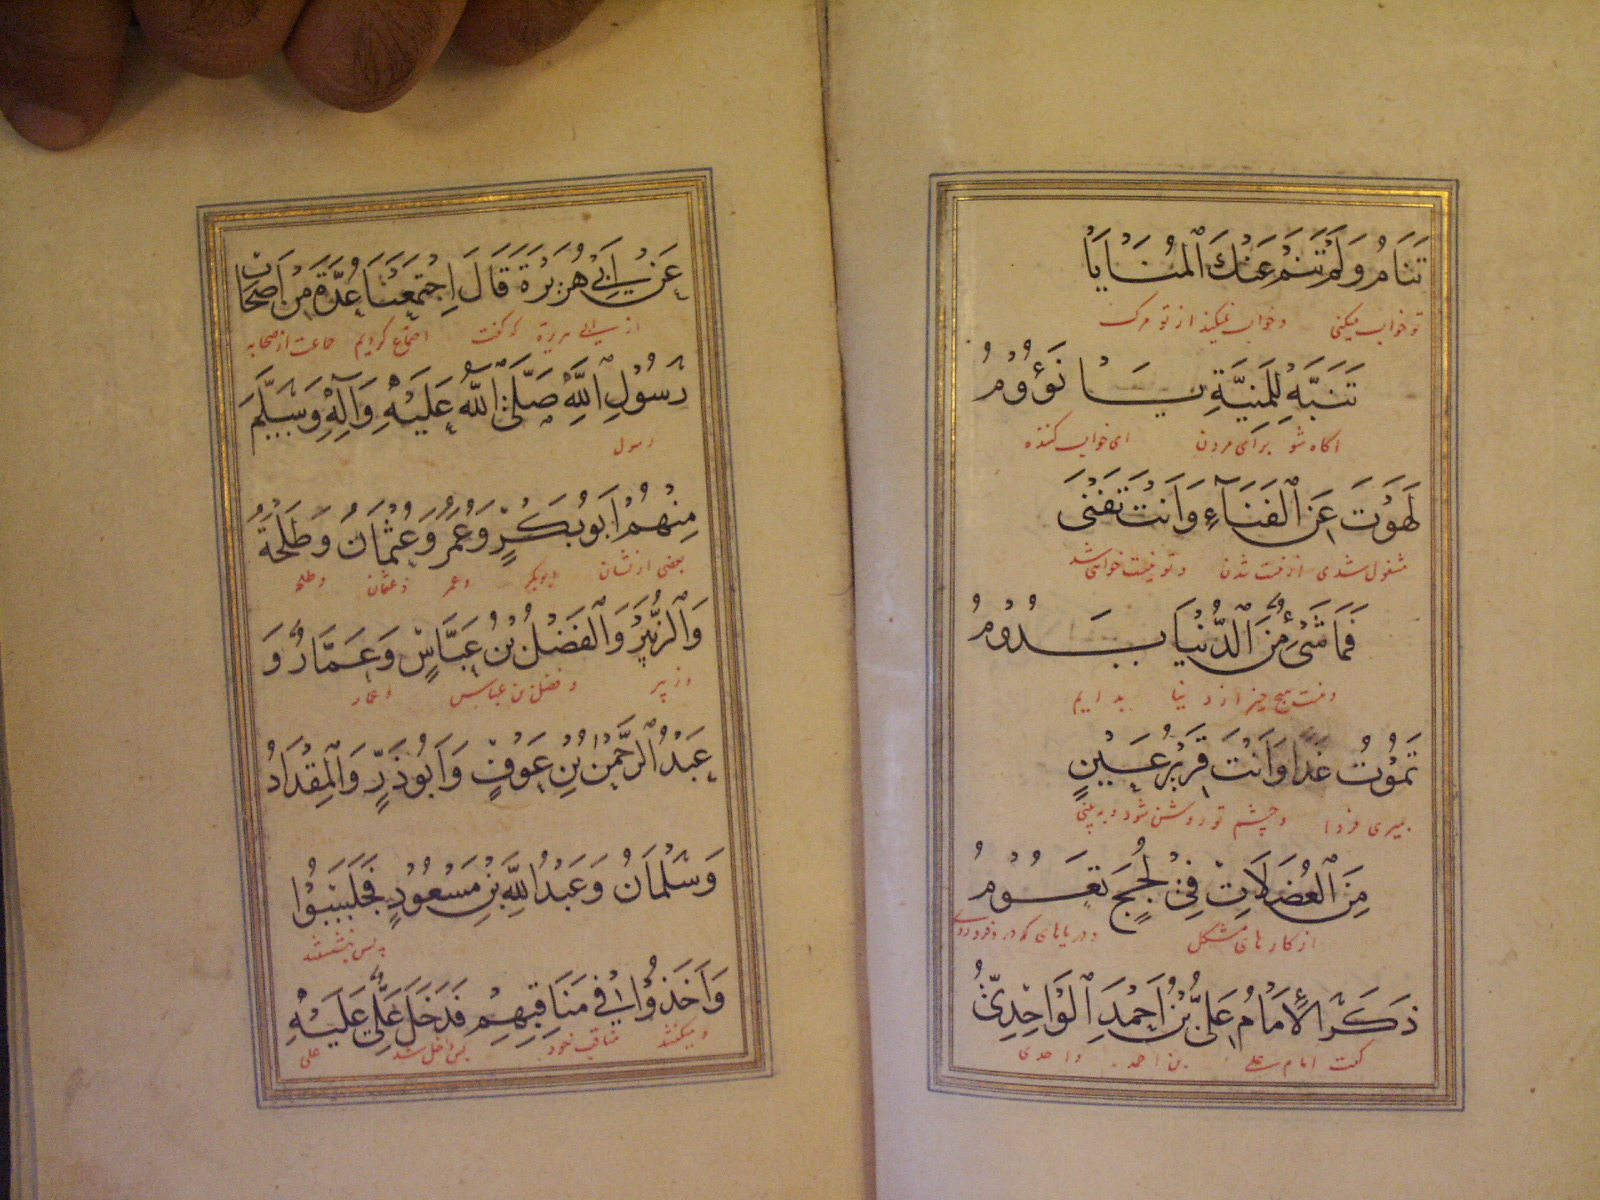 تَنَامُ وَلَمْ تَنَمْ عَنْكَ الْمُنَايَا
تو خواب میکنی و خواب نمیکند از تو مرگ
تَنَبَّهْ لِلْمَنِيَّةِ يَا نَؤُوْمُ
اگاه شو برای مردن ای خواب کننده
لَهَوْتَ عَنِ الْفَنَآءِ وَاَنْتَ تَفْنٰى
مشغول شدی از فنت شدن و تو نیست خواهی شد
فَمَا شَىْءٌ مِّنَ الدُّنْيَا يَدُوْمُ
هیچ چیز از دنیا
تَمُوْتُ غَدًا وَاَنْتَ قَرِيْرُ عَيْنٍ
بمیری فردا و چشم تو روشن شود
مِنَ الْعُضَلَاتِ فِيْ لُجَجٍ تَعُوْمُ
از کارهای مشکل و دریاهای که در
ذَكَرَ الْاِمَامُ عَلِىُّ بْنُ اَحْمَدَ الْوَاحِدِىُّ
گفت امام علی بن احمد واحدی
عَنْ اَبِيْ هُرَيْرَةَ قَالَ اِجْتَمَعْنَا عِدَّةً مِنْ اَصْحَابِ
از ابی هریرة که گفت اجتماع کردیم جماعت از صحابه
رَسُوْلِ اللّٰهِ صَلَّى اللّٰهُ عَلَيْهِ وَآلِهٖ وَسَلَّمَ
رسول
مِنْهُمْ اَبُوْبَكْرٍ وَعُمَرُ وَعُثْمَانُ وَطَلْحَةُ
بعضی از نشان ابوبکر و عمر و عثمان و طلحه
وَالزُّبَيْرُ وَالْفَضْلُ بْنُ عَبَّاسٍ وَعَمَّارٌ وَ
و زبیر و فضل بن عباس و عمار
عَبْدُ الرَّحْمٰنِ بْنِ عَوْفٍ وَاَبُوْذَرٍّ وَالْمِقْدَادُ
وَسَلْمَانُ وَعَبْدُ اللّٰهِ بْنِ مَسْعُوْدٍ فَجَلَسُوْا
پس بنشستند
وَاَخَذُوْا فِيْ مَنَاقِبِهِمْ فَدَخَلَ عَلِيٌّ عَلَيْهِ
مناقب خود پس داخل شد علی